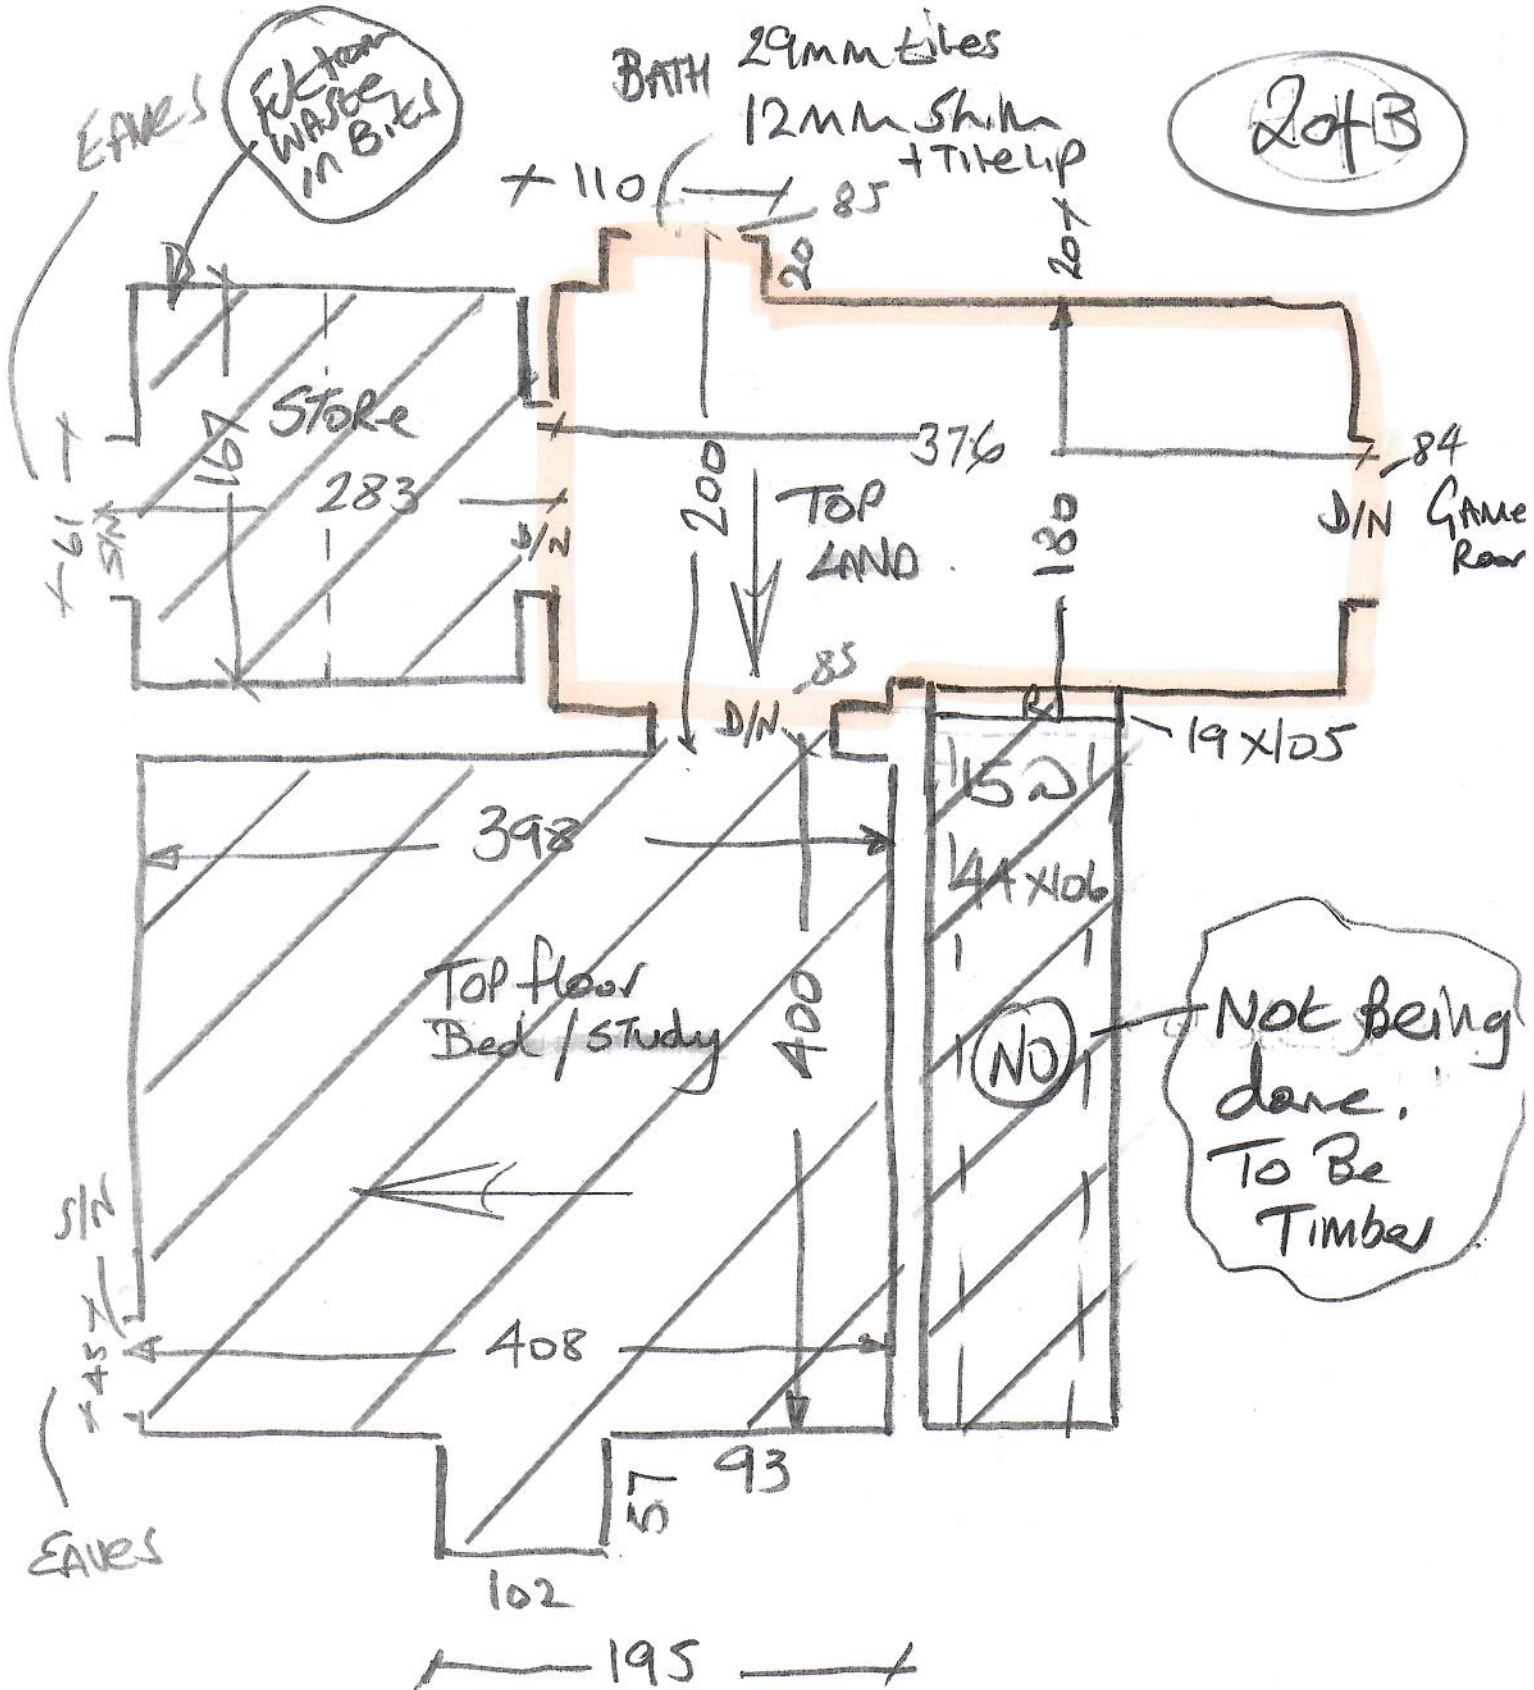 EAVES
Cut from
Waste
in Bits
BATH
29mm tiles
12mm Shim
+ Tile Lip
2 of 3
110
85
20
20
STORE
167
283
61
S/N
D/N
376
200
TOP
LAND
180
84
D/N
GAME
Room
85
D/N
19 X 105
15
44 X 106
398
Top floor
Bed / Study
400
NO
Not Being
done.
To Be
Timber
S/N
45
408
EAVES
93
57
102
195